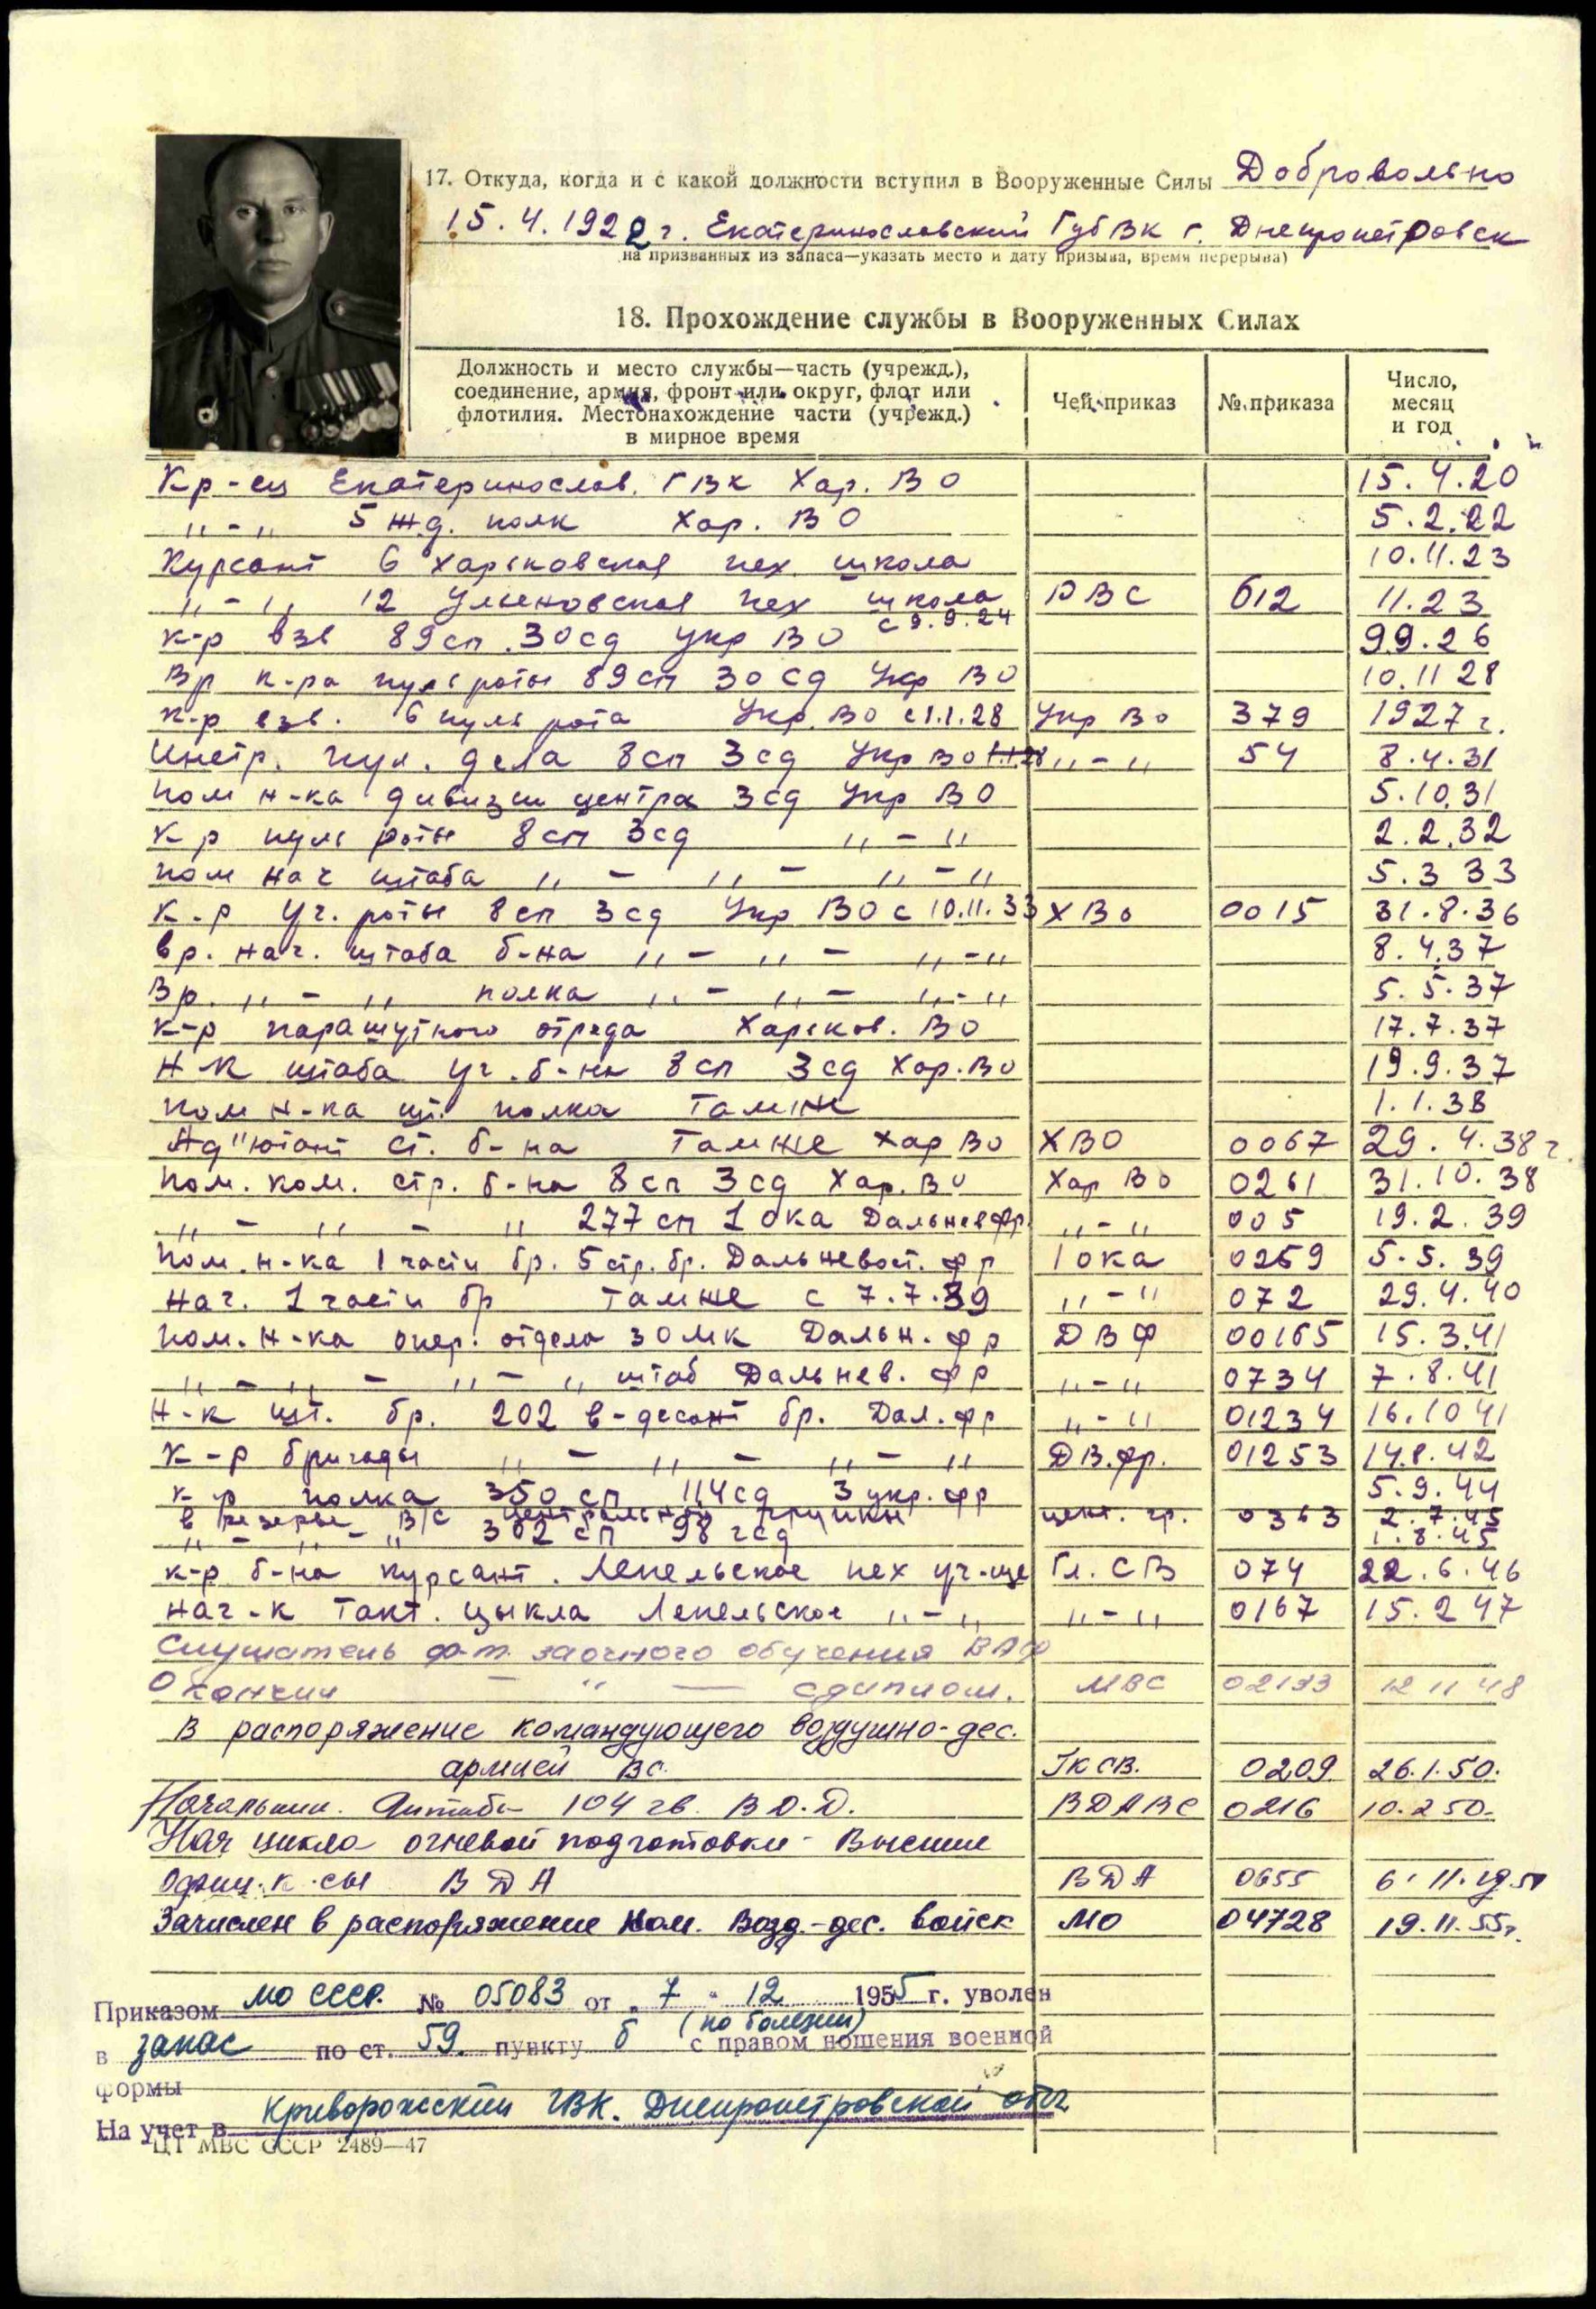 17. Откуда, когда и с какой должности вступил в Вооруженные Силы Добровольно
15.4.1922 г. Екатеринославский ГубВК г. Днепропетровск
на призванных из запаса—указать место и дату призыва, время перерыва)
18. Прохождение службы в Вооруженных Силах
Должность и место службы—часть (учрежд.), соединение, армия, фронт или округ, флот или флотилия. Местонахождение части (учрежд.) в мирное время
Чей приказ
№ приказа
Число, месяц и год
Кр-ец Екатеринослав. ГВК Хар. ВО 15.4.20
„-„ 5 жд. полк Хар. ВО 5.2.22
Курсант 6 Харьковская пех. школа 10.11.23
„-„ 12 Ульеновская пех школа РВС 612 11.23
к-р взв 89сп. 30сд Укр ВО с 9.9.24 9.9.26
Вр к-ра пуль роты 89сп 30сд Укр ВО 10.11 28
к-р взв. 6 пуль рота Укр. ВО с 1.1.28 Укр ВО 379 1927 г.
Инстр. пул. дела 8сп 3сд Укр ВО 1.1.28 „-„ 54 8.4.31
Пом н-ка дивизи центра 3сд Укр ВО 5.10.31
К-р пуль роты 8сп 3сд „-„ 2.2.32
Пом нач штаба „ - „ - „-„ 5.3 33
К-р уч. роты 8сп 3сд Укр ВО с 10.11.33 ХВО 0015 31.8.36
вр. нач. штаба б-на „ - „ - „-„ 8.4.37
Вр. „ - „ полка „ - „ - „-„ 5.5.37
к-р парашутного отряда Харьков. ВО 17.7.37
Н-К штаба уч. б-на 8сп 3сд Хар. ВО 19.9.37
пом н-ка шт. полка Тамже 1.1.38
Ад"ютант ст. б-на Тамже Хар ВО ХВО 0067 29.4.38 г.
Пом. ком. стр. б-на 8сп 3сд Хар. ВО Хар ВО 0261 31.10.38
„ - „ - „ 277сп 1 ока Дальневфр. „-„ 005 19.2.39
Пом. н-ка 1 части бр. 5 стр. бр. Дальневост. фр 1 ока 0259 5.5.39
Нач. 1 части бр Тамже с 7.7.39 „-„ 072 29.4.40
Пом. н-ка опер. отдела 30мк Дальн. фр ДВФ 00165 15.3.41
„ - „ - „ - „ штаб Дальнев. фр „-„ 0734 7.8.41
Н-к шт. бр. 202 в-десант бр. Дал. фр „-„ 01234 16.10 41
К-р бригады „ - „ - „ - „ ДВ.фр. 01253 14.8.42
к-р полка 350 сп 114сд 3 укр. фр 5.9.44
в резерве В/С Центральной группы цент. гр. 0363 2.7.45
„ - „ - „ 302 сп 98 гсд 1.8.45
к-р б-на курсант. Лепельское пех уч-ще Гл. СВ 074 22.6.46
нач-к такт. цыкла Лепельское „-„ „-„ 0167 15.2 47
Слушатель ф-т. заочного обучения ВАФ
Окончил - „ - с диплом. МВС 02133 12 11 48
В распоряжение командующего воздушно-дес.
армией ВС. ГКСВ. 0209 26.1.50.
Начальник. Штаба 104 гв. В.Д.Д. ВДАВС 0216 10.2 50.
Нач цикла огневой подготовки Высшие
офиц. к-сы ВДА ВДА 0655 6.11.19 51
Зачислен в распоряжение Ком. Возд.-дес. войск МО 04728 19.11.55г.
Приказом МО СССР. № 05083 от „ 7 " 12 1955 г. уволен
в запас по ст. 59. пункту б (по болезни) с правом ношения военной
формы
На учет в Криворожский ГВК. Днепропетровской обл
ЦТ МВС СССР 2489—47